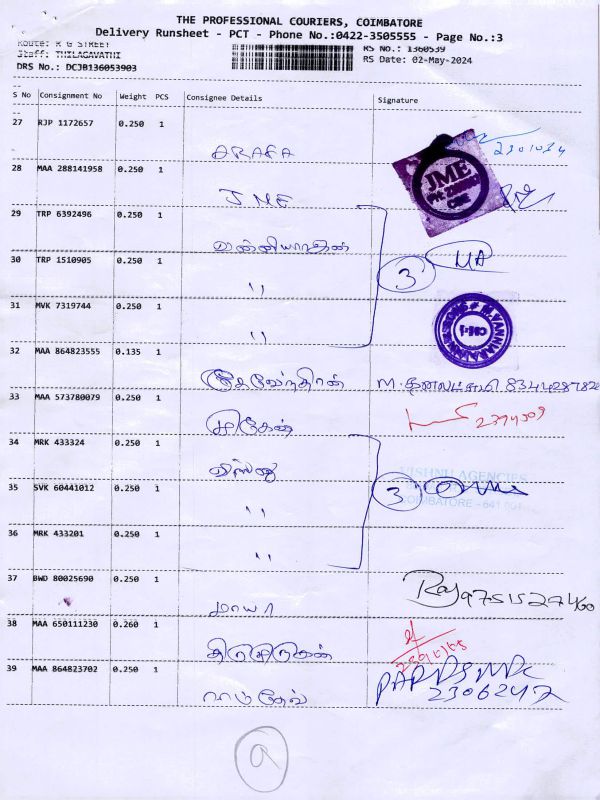 THE PROFESSIONAL COURIERS, COIMBATORE
Delivery Runsheet - PCT - Phone No.:0422-3505555 - Page No.:3
Route: R G STREET
Staff: THILAGAVATHI
RS No.: 1360539
DRS No.: DCJB136053903
RS Date: 02-May-2024
S No Consignment No Weight PCS Consignee Details Signature
27 RJP 1172657 0.250 1
ARAFA
2301034
28 MAA 288141958 0.250 1
JME
JME
CBE
29 TRP 6392496 0.250 1
30 TRP 1510905 0.250 1
,,
3
31 MVK 7319744 0.250 1
,,
CBE-1
32 MAA 864823555 0.135 1
33 MAA 573780079 0.250 1
முருகேன்
2394309
34 MRK 433324 0.250 1
விஸ்ணு
VISHNU AGENCIES
35 SVK 60441012 0.250 1
,,
3
COIMBATORE - 641 001
36 MRK 433201 0.250 1
,,
37 BWD 80025690 0.250 1
மாயா
Raj 9751527460
38 MAA 650111230 0.260 1
திருமுருகன்
39 MAA 864823702 0.250 1
ராமதேவ்
2306247
9